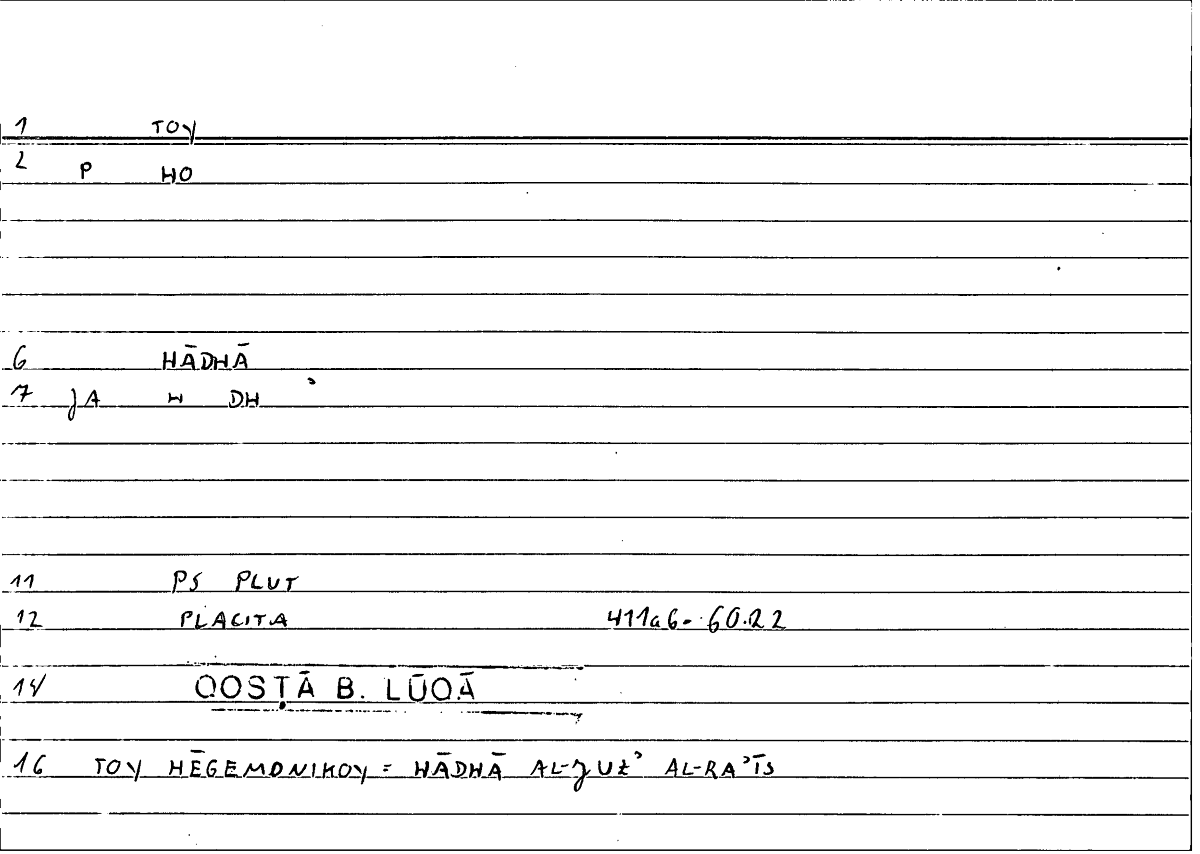 1 TOY
2 P HO
6 HĀDHĀ
7 JA H DH ʾ
11 PS PLUT
12 PLACITA 411a6-60.22
14 QOSṬĀ B. LŪQĀ
16 TOY HĒGEMONIKOY = HĀDHĀ AL-JUZʾ AL-RAʾĪS